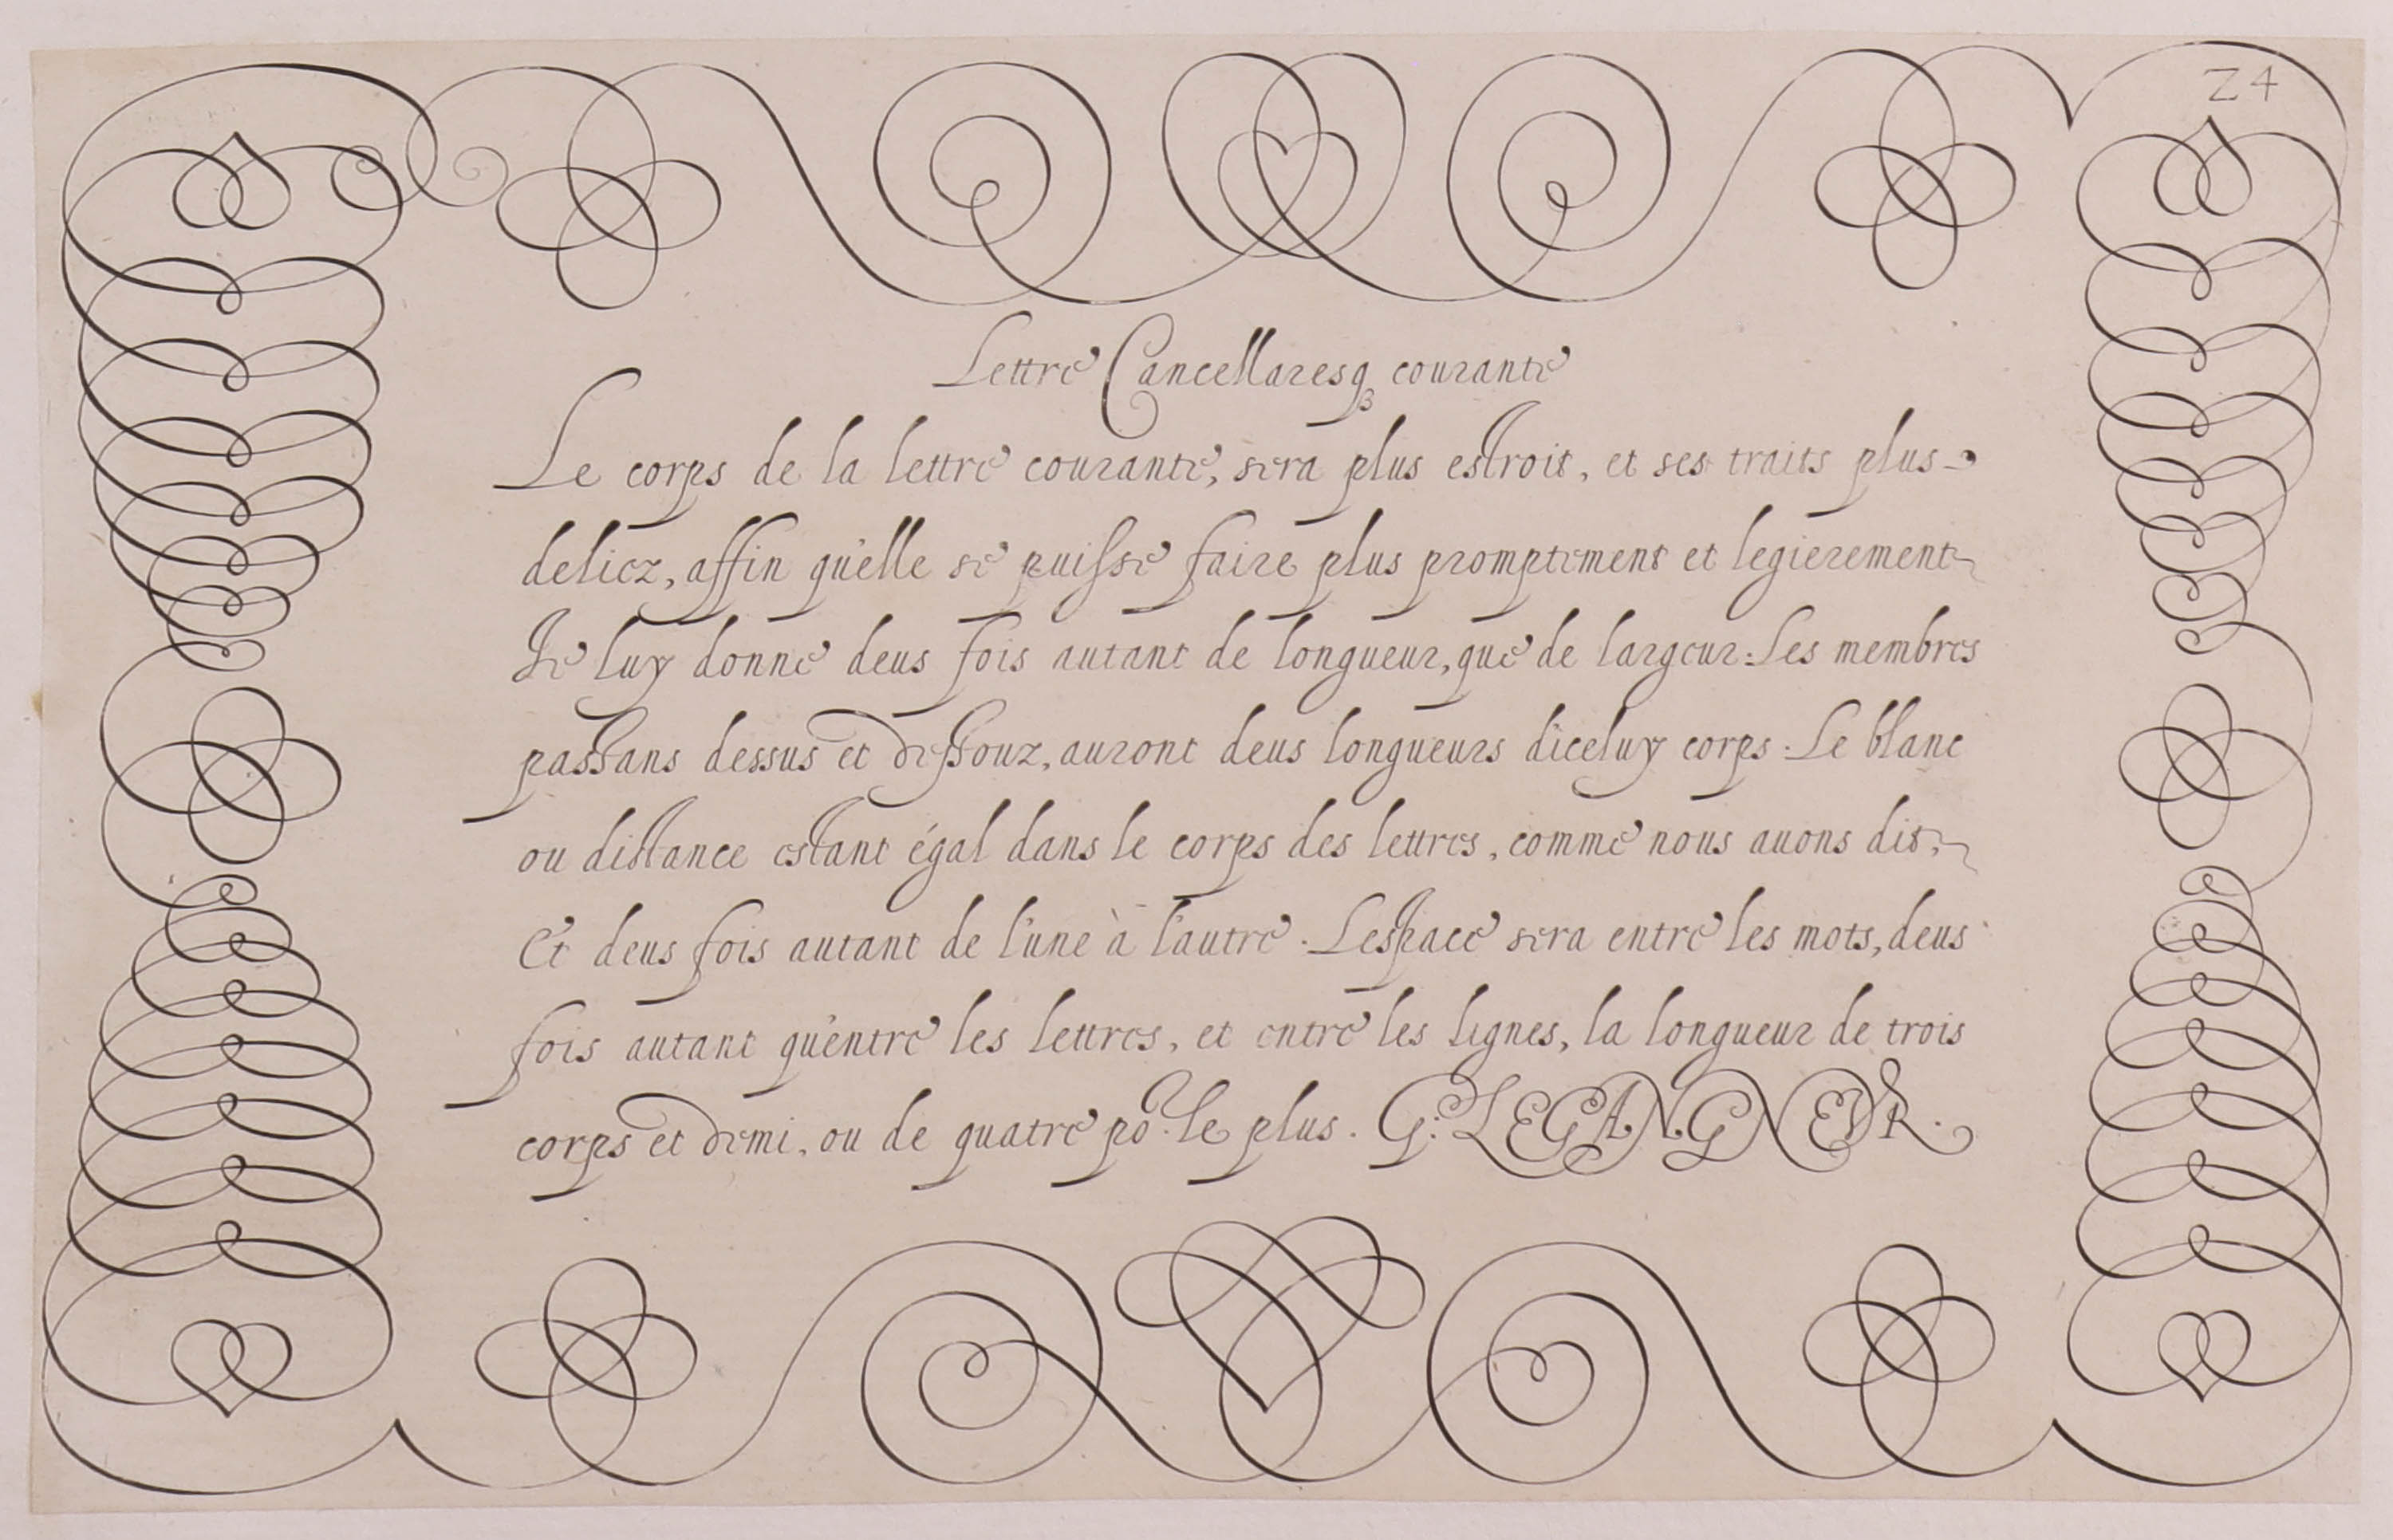 24
Lettre Cancellaresq; courante
Le corps de la lettre courante, sera plus estroit, et ses traits plus
deliez, affin qu'elle se puisse faire plus promptement et legierement
Je luy donne deus fois autant de longueur, que de largeur: Les membres
passans dessus et dessouz, auront deus longueurs diceluy corps. Le blanc
ou distance estant égal dans le corps des lettres, comme nous auons dit,
Et deus fois autant de l'une à l'autre. Lespace sera entre les mots, deus
fois autant qu'entre les lettres, et entre les lignes, la longueur de trois
corps et demi, ou de quatre po.r le plus. G: LEGANGNEVR.